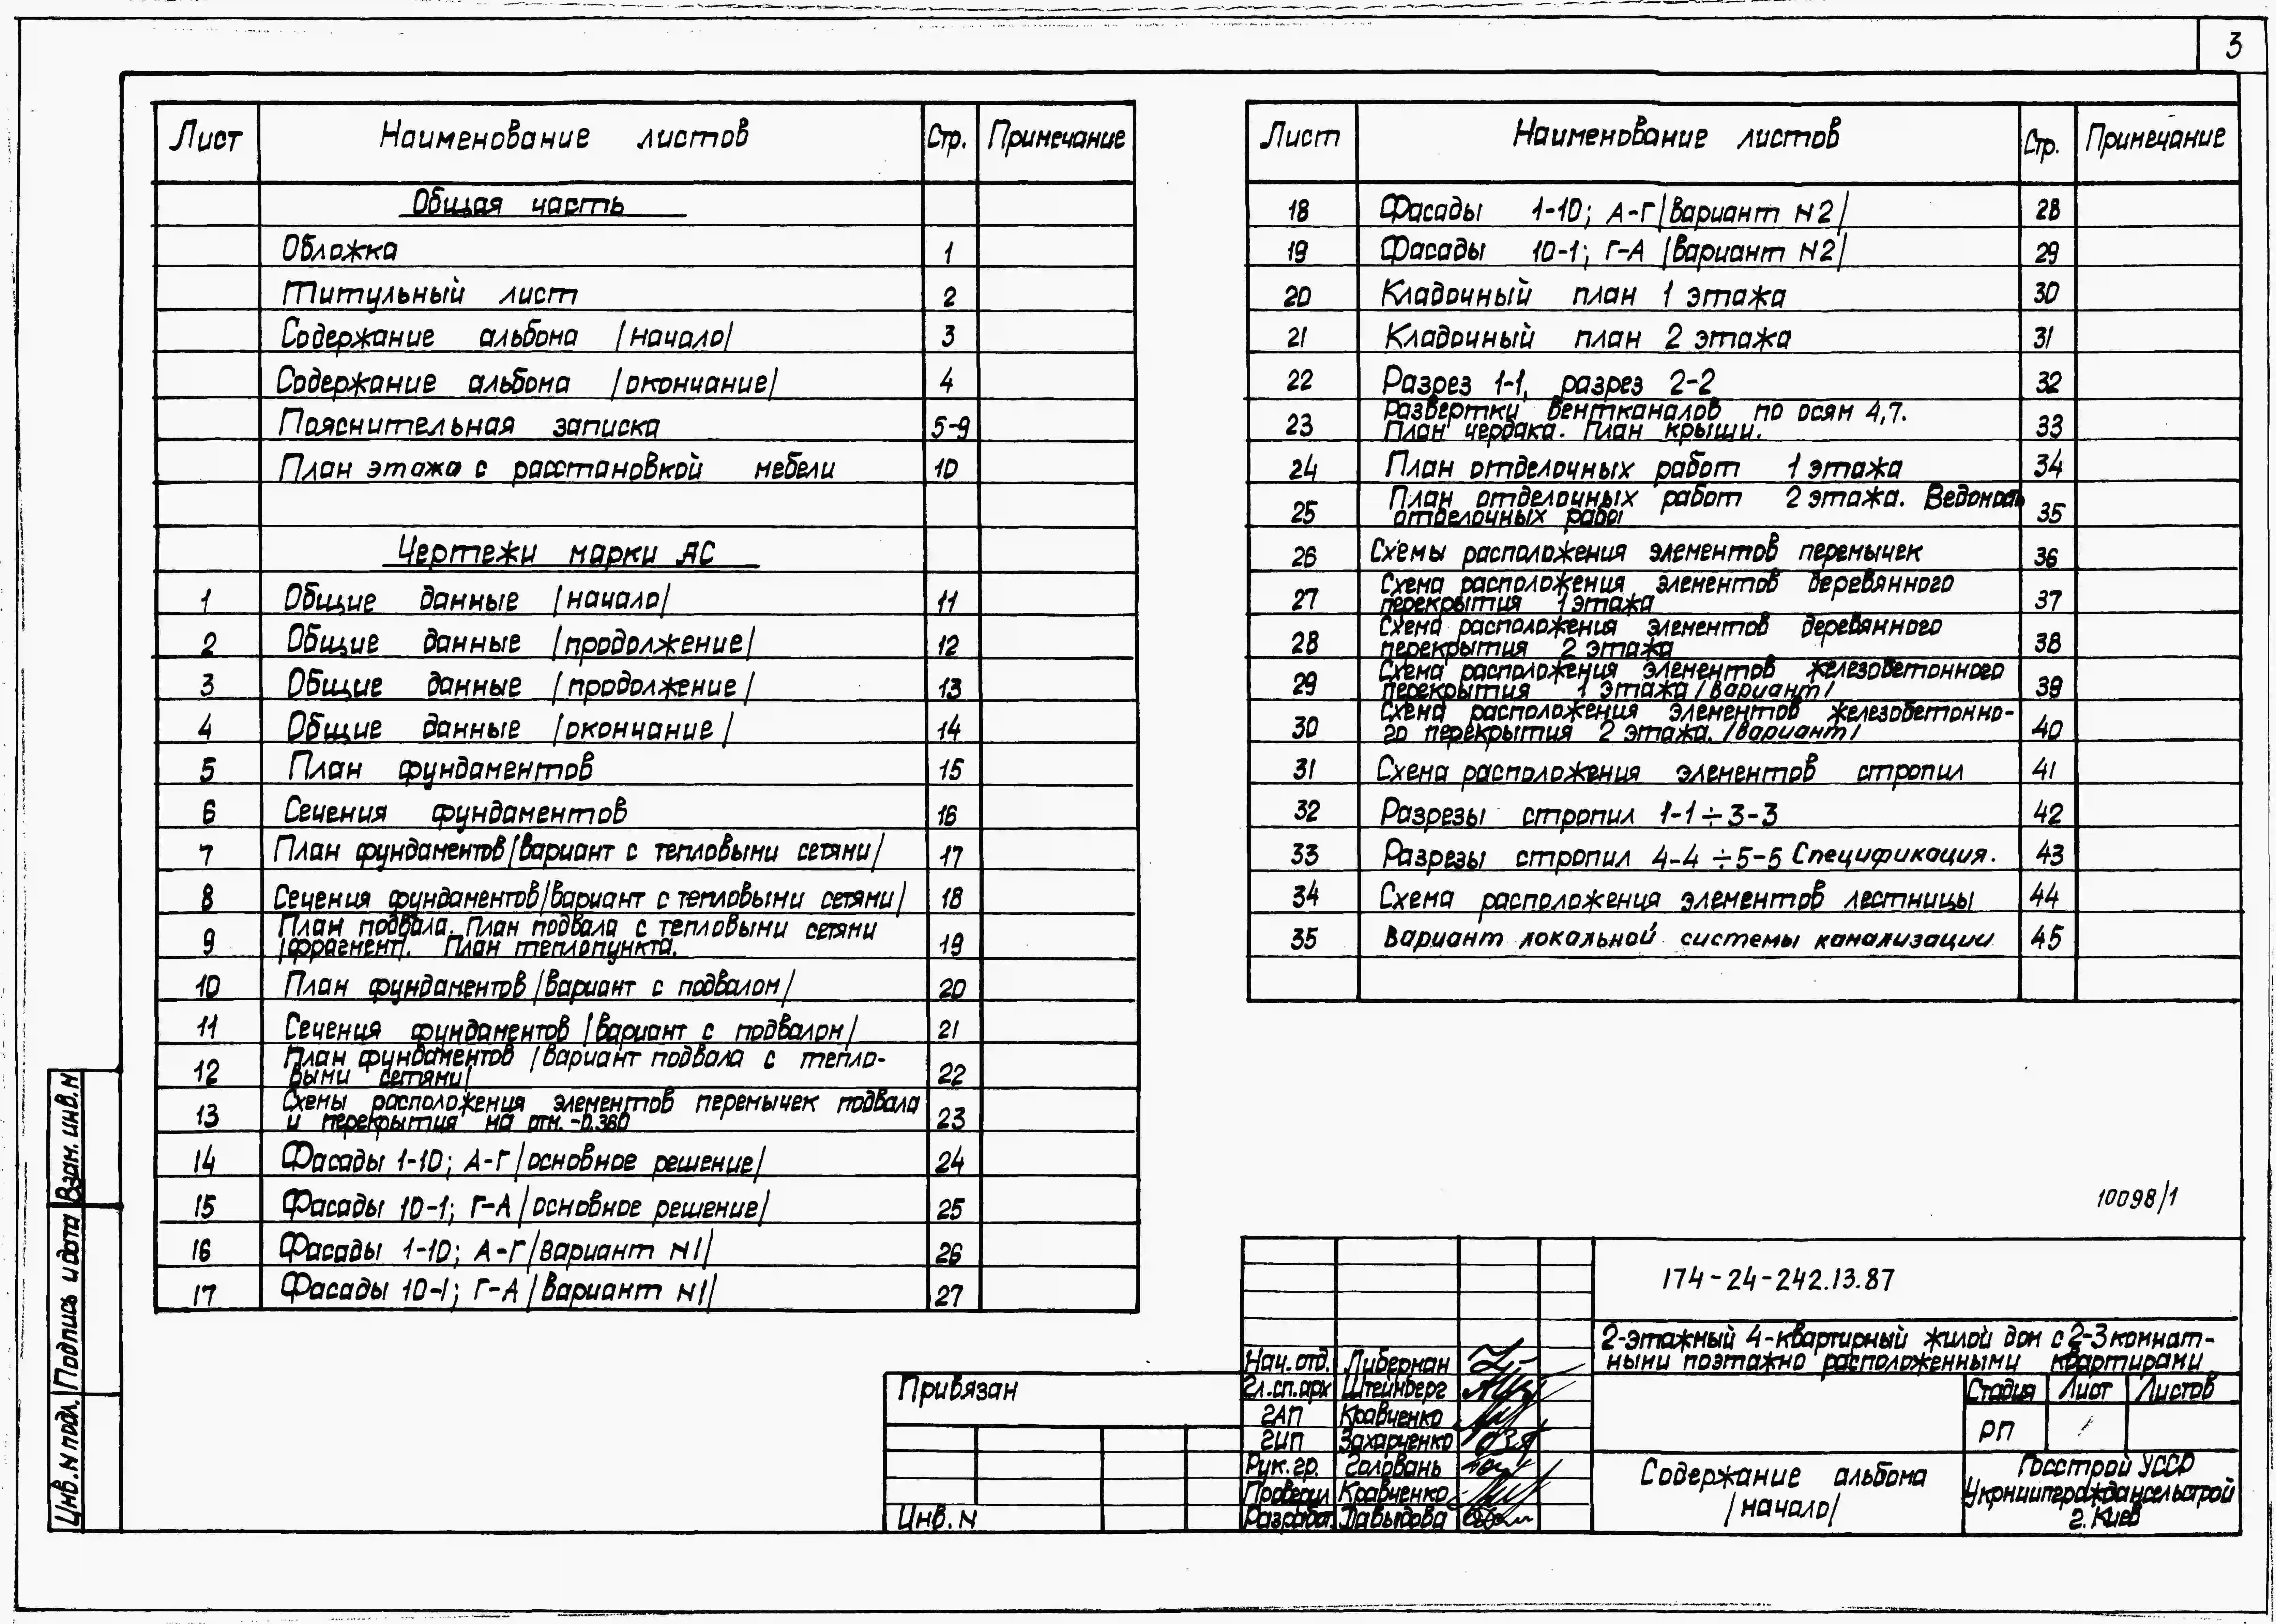 3
Лист Наименование листов Стр. Примечание
Общая часть
Обложка 1
Титульный лист 2
Содержание альбома /начало/ 3
Содержание альбома /окончание/ 4
Пояснительная записка 5-9
План этажа с расстановкой мебели 10
Чертежи марки АС
1 Общие данные /начало/ 11
2 Общие данные /продолжение/ 12
3 Общие данные /продолжение/ 13
4 Общие данные /окончание/ 14
5 План фундаментов 15
6 Сечения фундаментов 16
7 План фундаментов /вариант с тепловыми сетями/ 17
8 Сечения фундаментов /вариант с тепловыми сетями/ 18
План подвала. План подвала с тепловыми сетями
9 /фрагмент/. План теплопункта. 19
10 План фундаментов /вариант с подвалом/ 20
11 Сечения фундаментов /вариант с подвалом/ 21
План фундаментов /вариант подвала с тепло-
12 выми сетями/ 22
Схемы расположения элементов перемычек подвала
13 и перекрытия на отм. -0.360 23
14 Фасады 1-10; А-Г /основное решение/ 24
15 Фасады 10-1; Г-А /основное решение/ 25
16 Фасады 1-10; А-Г /вариант N1/ 26
17 Фасады 10-1; Г-А /вариант N1/ 27
Лист Наименование листов Стр. Примечание
18 Фасады 1-10; А-Г /вариант N2/ 28
19 Фасады 10-1; Г-А /вариант N2/ 29
20 Кладочный план 1 этажа 30
21 Кладочный план 2 этажа 31
22 Разрез 1-1, разрез 2-2 32
Развертки вентканалов по осям 4,7.
23 План чердака. План крыши. 33
24 План отделочных работ 1 этажа 34
План отделочных работ 2 этажа. Ведомость
25 отделочных работ 35
26 Схемы расположения элементов перемычек 36
Схема расположения элементов деревянного
27 перекрытия 1 этажа 37
Схема расположения элементов деревянного
28 перекрытия 2 этажа 38
Схема расположения элементов железобетонного
29 перекрытия 1 этажа /вариант/ 39
Схема расположения элементов железобетонно-
30 го перекрытия 2 этажа. /вариант/ 40
31 Схема расположения элементов стропил 41
32 Разрезы стропил 1-1÷3-3 42
33 Разрезы стропил 4-4÷5-5 Спецификация. 43
34 Схема расположения элементов лестницы 44
35 Вариант локальной системы канализации 45
10098/1
174-24-242.13.87
2-этажный 4-квартирный жилой дом с 2-3 комнат-
ными поэтажно расположенными квартирами
Нач. отд. Либерман
Гл. сп. арх Штейнберг
ГАП Кравченко
ГИП Захарченко
Рук. гр. Головань
Проверил Кравченко
Разраб. Давыдова
Стадия Лист Листов
РП 1
Содержание альбома
/начало/
Госстрой УССР
Укрниипграждансельстрой
г. Киев
Привязан
Инв. N
Инв. N подл. Подпись и дата Взам. инв. N